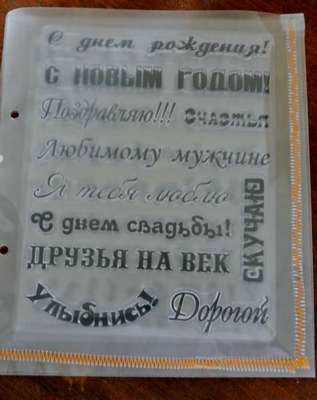 С днем рождения!
С НОВЫМ ГОДОМ!
Поздравляю!!! Счастья
Любимому мужчине
Я тебя люблю
С днем свадьбы!
СКУЧАЮ
ДРУЗЬЯ НА ВЕК
Улыбнись! Дорогой